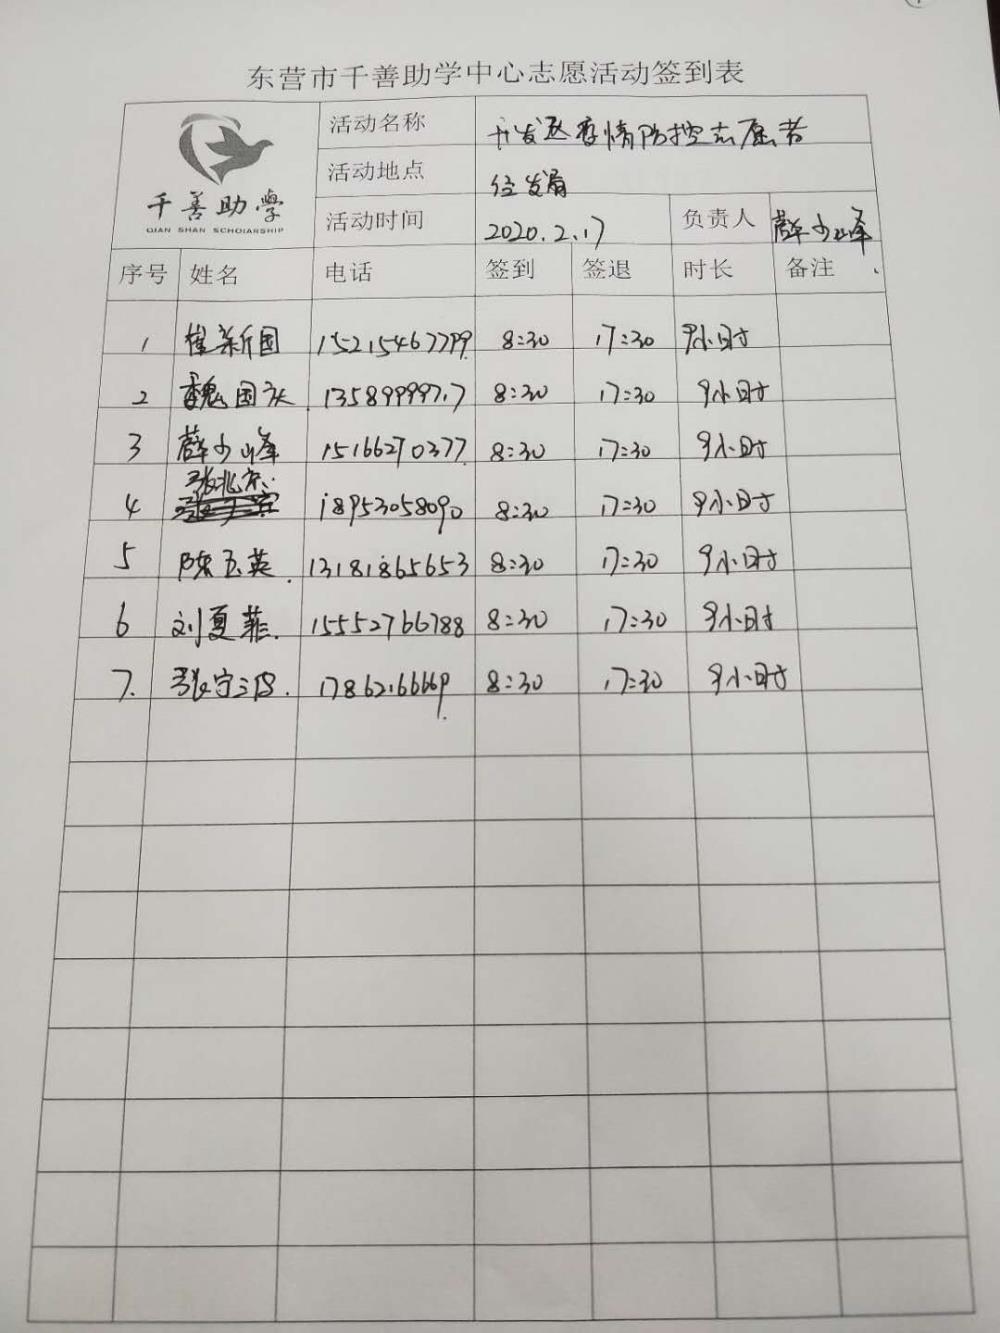 东营市千善助学中心志愿活动签到表
千善助学
QIAN SHAN SCHOLARSHIP
活动名称 开发区疫情防控志愿者
活动地点 经发局
活动时间 2020.2.17 负责人 薛少峰
序号 姓名 电话 签到 签退 时长 备注
1 崔新国 15215467799 8:30 17:30 9小时
2 魏国庆 13589999717 8:30 17:30 9小时
3 薛少峰 15166270377 8:30 17:30 9小时
4 张北京 18953058090 8:30 17:30 9小时
5 陈玉英 13181865653 8:30 17:30 9小时
6 刘夏菲 15552766788 8:30 17:30 9小时
7 张守 17862166669 8:30 17:30 9小时